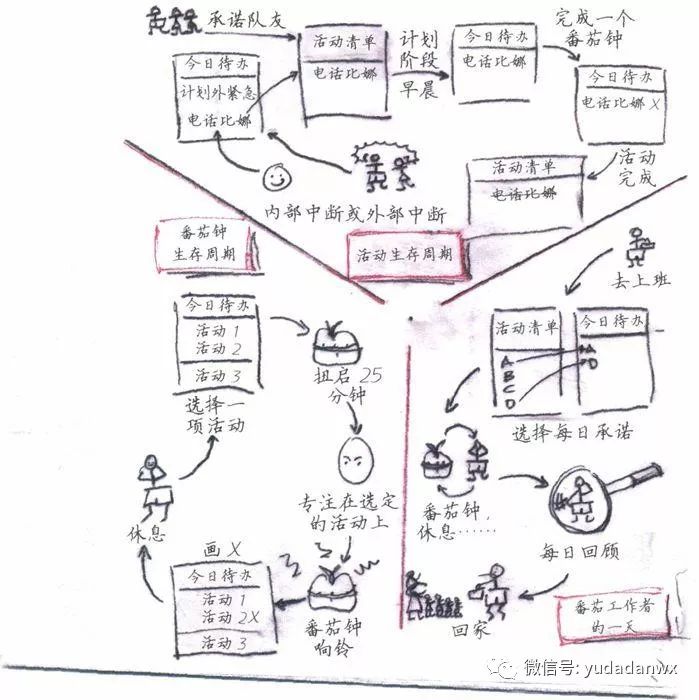 承诺队友
活动清单
电话比娜
计划
阶段
早晨
今日待办
电话比娜
完成一个
番茄钟
今日待办
计划外紧急
电话比娜
今日待办
电话比娜 X
活动
完成
活动清单
电话比娜
内部中断或外部中断
活动生存周期
番茄钟
生存周期
今日待办
活动 1
活动 2
活动 3
选择一
项活动
扭启 25
分钟
专注在选定
的活动上
番茄钟
响铃
画 X
今日待办
活动 1
活动 2X
活动 3
休息
去上班
活动清单
A
B
C
D
今日待办
A
D
选择每日承诺
番茄钟,
休息……
每日回顾
回家
番茄工作者
的一天
微信号: yudadanwx